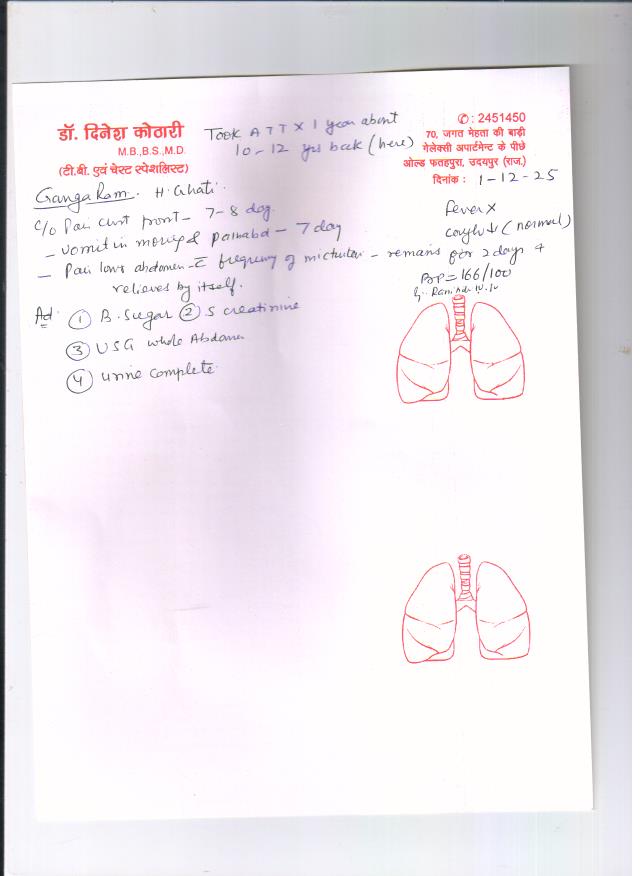 डॉ. दिनेश कोठारी
M.B.,B.S.,M.D.
(टी.बी. एवं चेस्ट स्पेशलिस्ट)
Took ATT X 1 year about
10-12 yrs back (here)
✆: 2451450
70, जगत मेहता की बाड़ी
गेलेक्सी अपार्टमेन्ट के पीछे
ओल्ड फतहपुरा, उदयपुर (राज.)
दिनांक : 1-12-25
Ganga Ram. H. Ghati.
c/o Pain chest front - 7-8 day
- vomit in morning & pain abd - 7 day
- Pain lower abdomen c̄ frequency of micturition - remains for 2 days &
relieves by itself.
Fever X
cough ↓ (normal)
BP = 166/100
Ad. ① B. Sugar ② S creatinine
③ USG whole Abdomen
④ urine complete